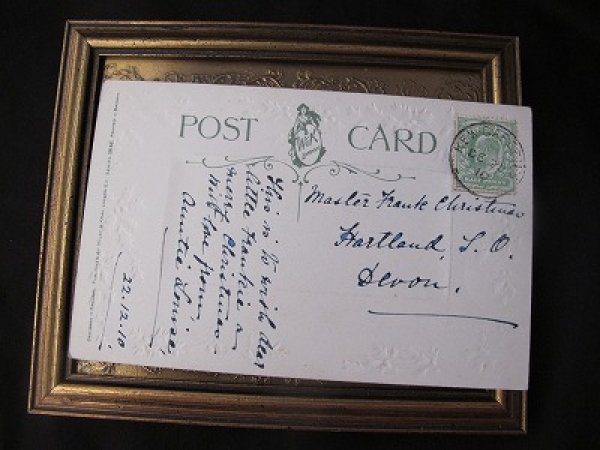 POST CARD
W&K
This is to wish dear
little Frankie a
merry Christmas
with love from
Auntie Louise
22.12.10
Master Frank Christmas
Hartland, S. O.
Devon.